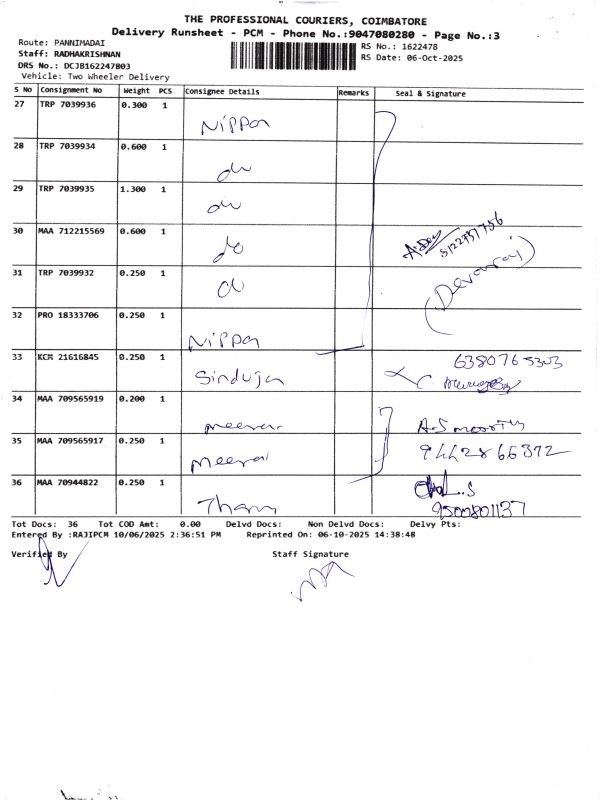 THE PROFESSIONAL COURIERS, COIMBATORE
Delivery Runsheet - PCM - Phone No.:9047080280 - Page No.:3
Route: PANNIMADAI
Staff: RADHAKRISHNAN
DRS No.: DCJB162247803
Vehicle: Two Wheeler Delivery
RS No.: 1622478
RS Date: 06-Oct-2025
S No Consignment No Weight PCS Consignee Details Remarks Seal & Signature
27 TRP 7039936 0.300 1 Nippon
28 TRP 7039934 0.600 1 do
29 TRP 7039935 1.300 1 do
30 MAA 712215569 0.600 1 do
31 TRP 7039932 0.250 1 do
(Devaraj)
32 PRO 18333706 0.250 1 Nippon
33 KCM 21616845 0.250 1 Sinduja 6380765303
34 MAA 709565919 0.200 1 meera
35 MAA 709565917 0.250 1 meera 9442866372
36 MAA 70944822 0.250 1 9500801137
Tot Docs: 36 Tot COD Amt: 0.00 Delvd Docs: Non Delvd Docs: Delvy Pts:
Entered By :RAJIPCM 10/06/2025 2:36:51 PM Reprinted On: 06-10-2025 14:38:48
Verified By Staff Signature